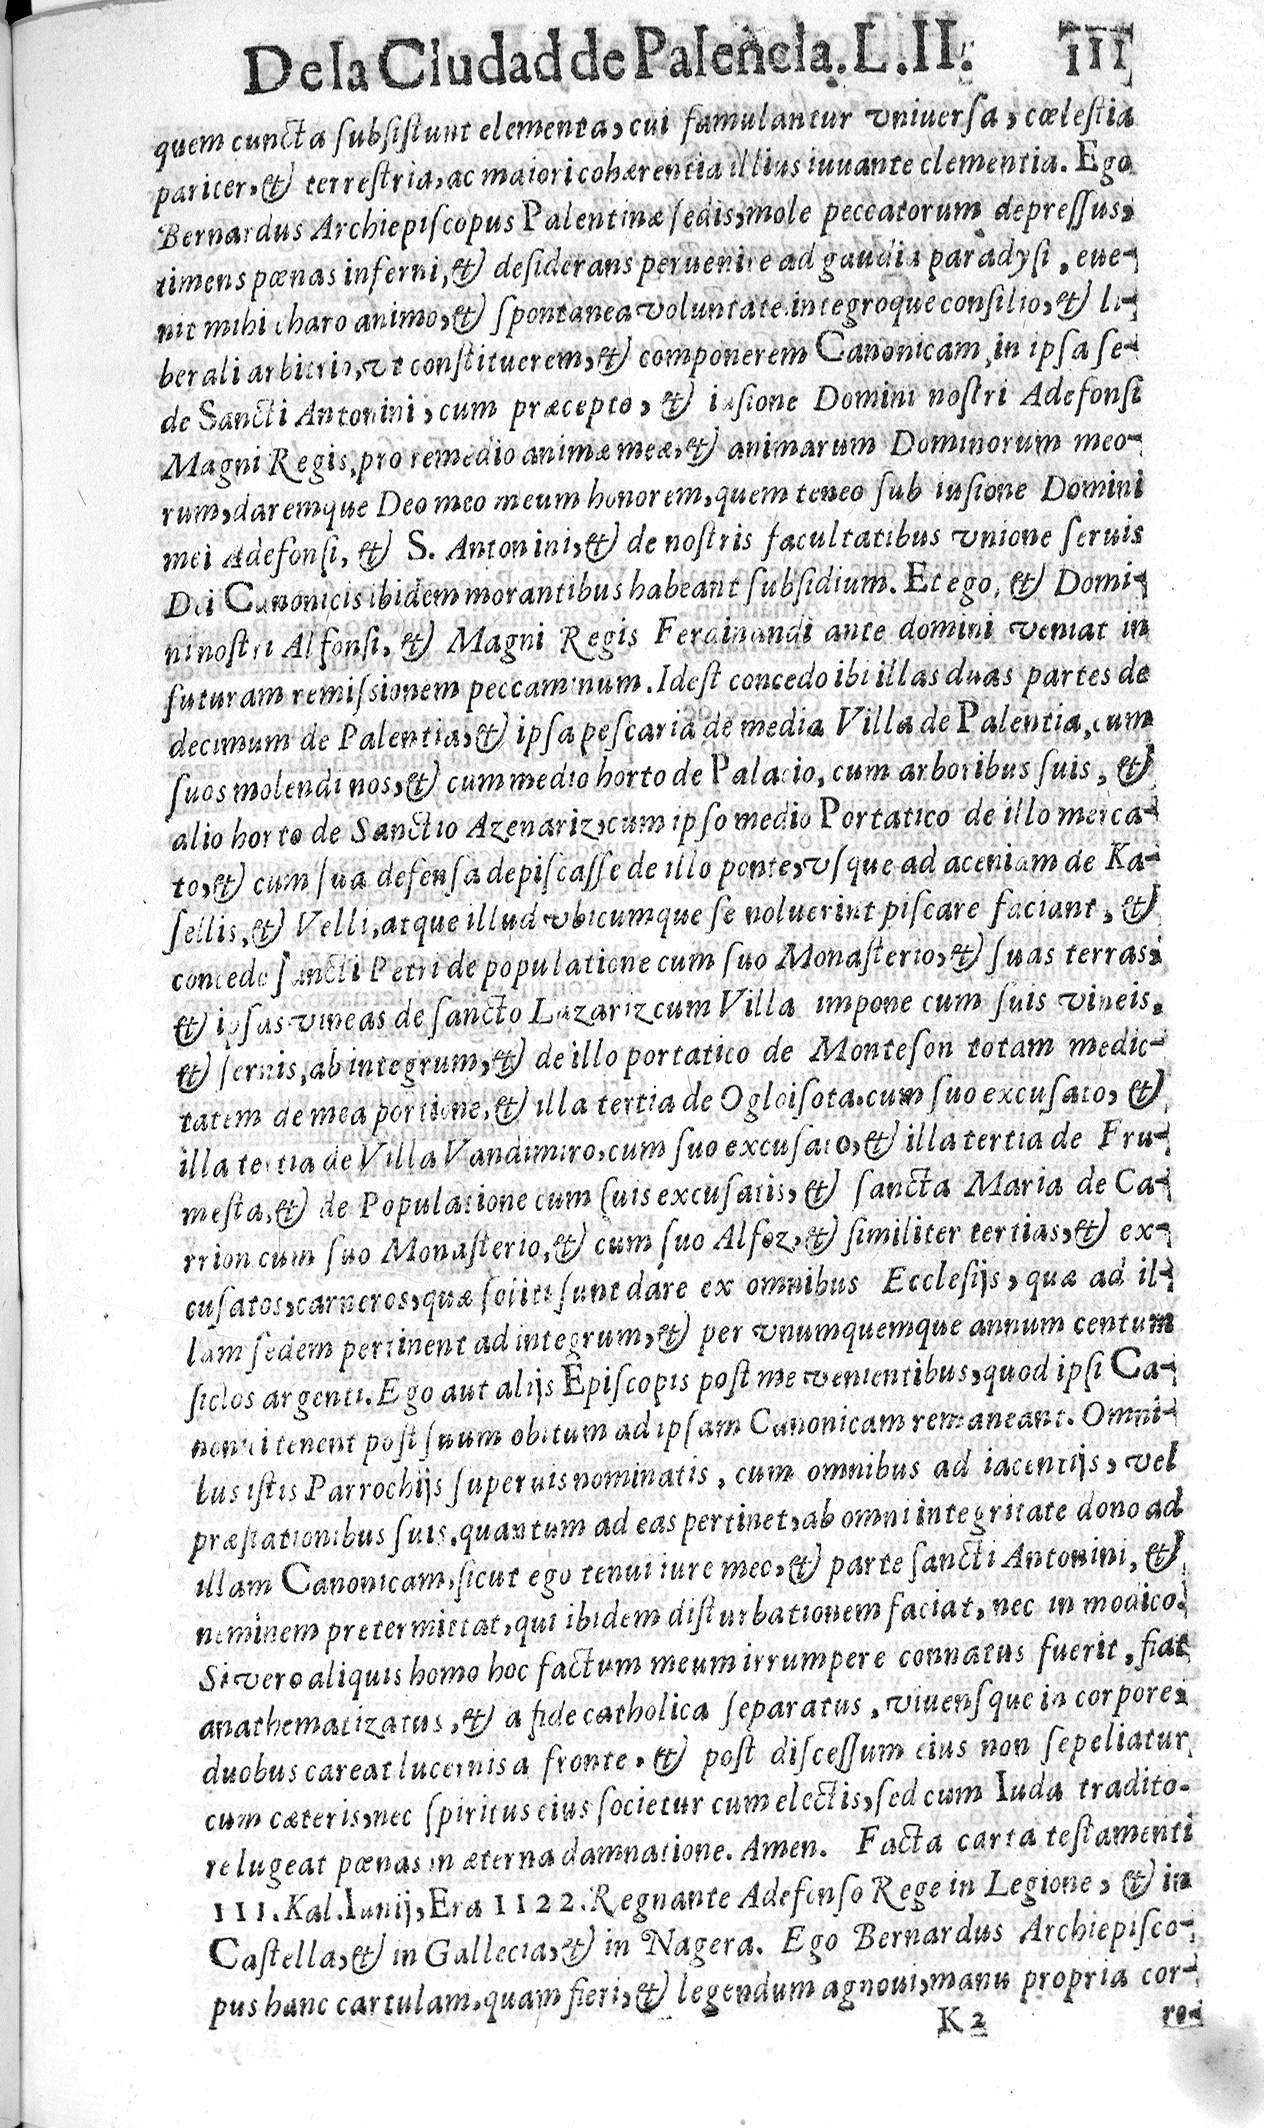 De la Ciudad de Palencia. L. II. 111
quem cuncta subsistunt elementa, cui famulantur vniuersa, cælestia
pariter, & terrestria, ac maiori cohærentia illius iuuante clementia. Ego
Bernardus Archiepiscopus Palentinæ sedis, mole peccatorum depressus,
timens pœnas inferni, & desiderans peruenire ad gaudia paradysi, eue-
nit mihi charo animo, & spontanea voluntate integroque consilio, & li-
berali arbitrio, vt constituerem, & componerem Canonicam in ipsa se-
de Sancti Antonini, cum præcepto, & iusione Domini nostri Adefonsi
Magni Regis, pro remedio animæ meæ, & animarum Dominorum meo-
rum, daremque Deo meo meum honorem, quem teneo sub iusione Domini
mei Adefonsi, & S. Antonini, & de nostris facultatibus vnione seruis
Dei Canonicis ibidem morantibus habeant subsidium. Et ego, & Domi-
ni nostri Alfonsi, & Magni Regis Ferdinandi ante domini veniat in
futuram remissionem peccaminum. Idest concedo ibi illas duas partes de
decimum de Palentia, & ipsa pescaria de media Villa de Palentia, cum
suos molendinos, & cum medio horto de Palacio, cum arboribus suis, &
alio horto de Sanctio Azenariz, cum ipso medio Portatico de illo merca-
to, & cum sua defensa depiscasse de illo ponte, vsque ad aceniam de Ka-
sellis, & Velli, atque illud vbicumque se voluerint piscare faciant, &
concedo sancti Petri de populatione cum suo Monasterio, & suas terras,
& ipsas vineas de sancto Lazariz cum Villa impone cum suis vineis,
& sernis, ab integrum, & de illo portatico de Monteson totam medie-
tatem de mea portione, & illa tertia de Ogloisota, cum suo excusato, &
illa tertia de Villa Vandimiro, cum suo excusato, & illa tertia de Fru-
mesta, & de Populatione cum suis excusatis, & sancta Maria de Ca-
rrion cum suo Monasterio, & cum suo Alfoz, & similiter tertias, & ex-
cusatos, carneros, quæ soliti sunt dare ex omnibus Ecclesijs, quæ ad il-
lam sedem pertinent ad integrum, & per vnumquemque annum centum
siclos argenti. Ego aut alijs Episcopis post me venientibus, quod ipsi Ca-
nonici tenent post suum obitum ad ipsam Canonicam remaneant. Omni-
bus istis Parrochijs superuis nominatis, cum omnibus ad iacentijs, vel
præstationibus suis, quantum ad eas pertinet, ab omni integritate dono ad
illam Canonicam, sicut ego tenui iure meo, & parte sancti Antonini, &
neminem pretermittat, qui ibidem disturbationem faciat, nec in modico.
Si vero aliquis homo hoc factum meum irrumpere connatus fuerit, fiat
anathematizatus, & a fide catholica separatus, viuensque in corpore,
duobus careat lucernis a fronte, & post discessum eius non sepeliatur
cum cæteris, nec spiritus eius societur cum electis, sed cum Iuda tradito-
re lugeat pœnas in æterna damnatione. Amen. Facta carta testamenti
III. Kal. Iunij, Era 1122. Regnante Adefonso Rege in Legione, & in
Castella, & in Gallecia, & in Nagera. Ego Bernardus Archiepisco-
pus hanc cartulam, quam fieri, & legendum agnoui, manu propria cor-
K 2 ro-